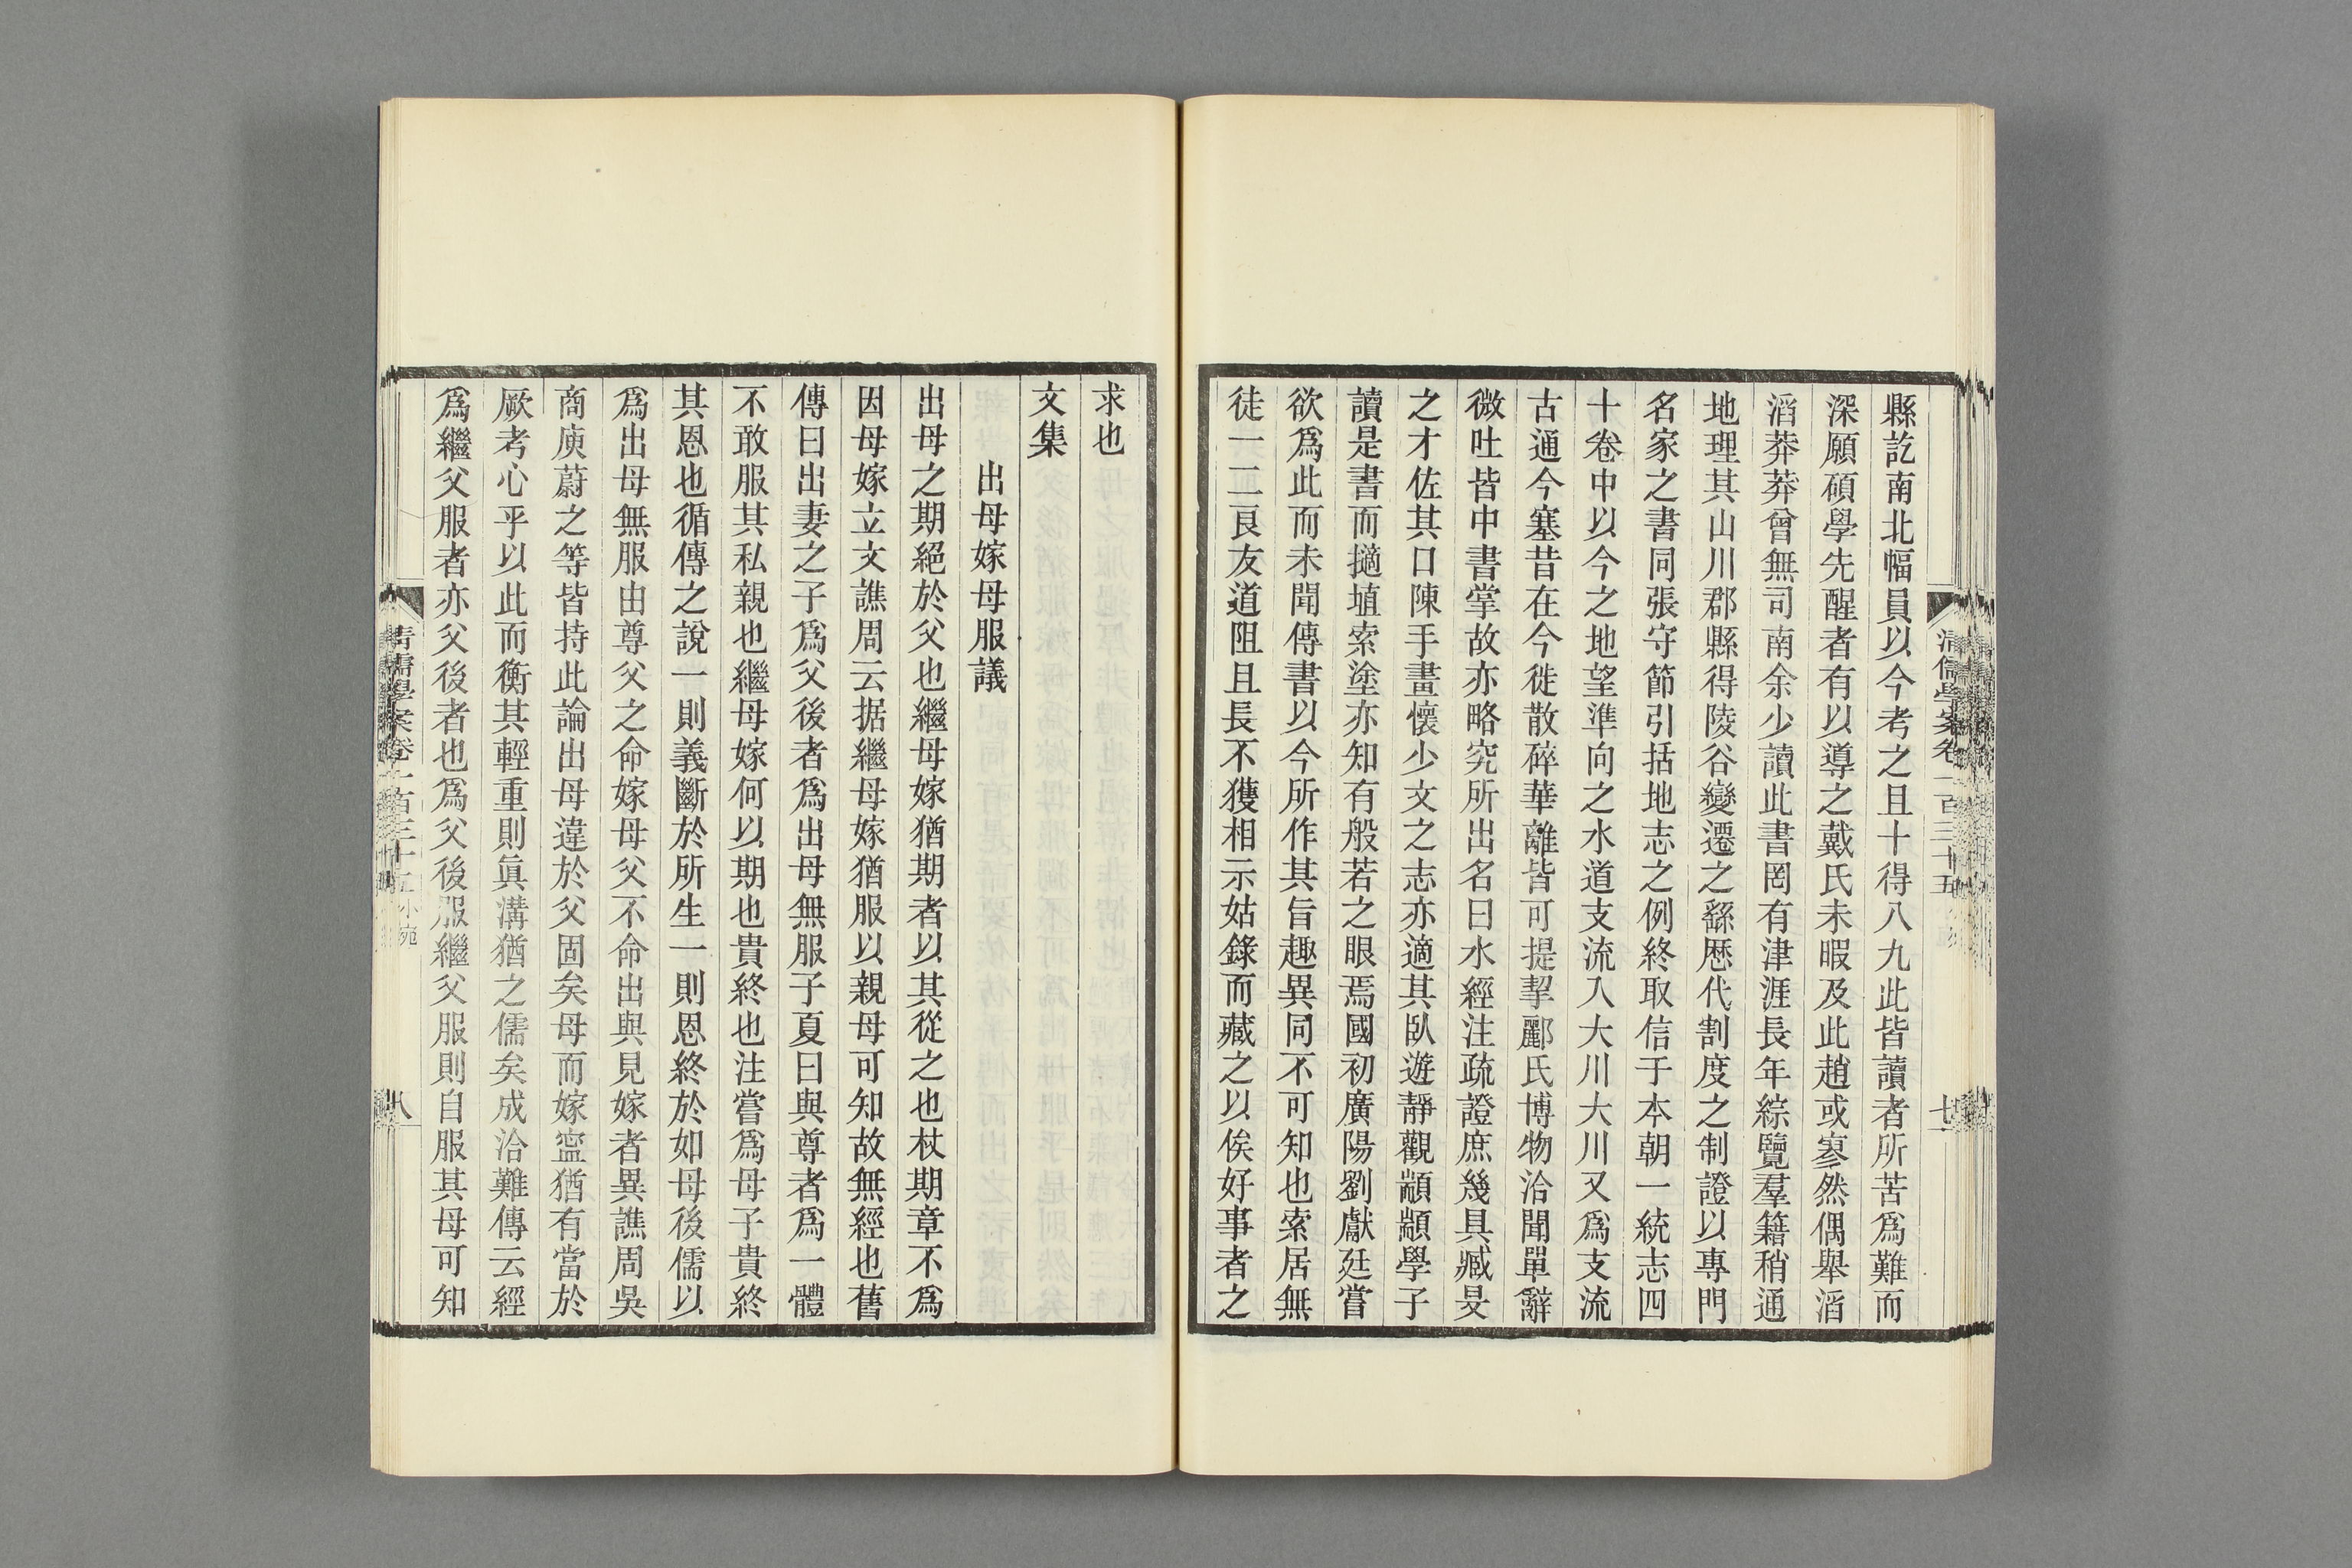 縣訖南北幅員以今考之且十得八九此皆讀者所苦爲難而
深願碩學先醒者有以導之戴氏未暇及此趙或寥然偶舉滔
滔莽莽曾無司南余少讀此書罔有津涯長年綜覽羣籍稍通
地理其山川郡縣得陵谷變遷之繇歷代割度之制證以專門
名家之書同張守節引括地志之例終取信于本朝一統志四
十卷中以今之地望準向之水道支流入大川大川又爲支流
古通今塞昔在今徙散碎華離皆可提挈酈氏博物洽聞單辭
微吐皆中書掌故亦略究所出名曰水經注疏證庶幾具臧旻
之才佐其口陳手畫懷少文之志亦適其臥遊靜觀顓顓學子
讀是書而擿埴索塗亦知有般若之眼焉國初廣陽劉獻廷嘗
欲爲此而未聞傳書以今所作其旨趣異同不可知也索居無
徒一二良友道阻且長不獲相示姑錄而藏之以俟好事者之
清儒學案卷一百三十五
七
求也
文集
出母嫁母服議
出母之期絕於父也繼母嫁猶期者以其從之也杖期章不爲
因母嫁立文譙周云据繼母嫁猶服以親母可知故無經也舊
傳曰出妻之子爲父後者爲出母無服子夏曰與尊者爲一體
不敢服其私親也繼母嫁何以期也貴終也注嘗爲母子貴終
其恩也循傳之說一則義斷於所生一則恩終於如母後儒以
爲出母無服由尊父之命嫁母父不命出與見嫁者異譙周吳
商庾蔚之等皆持此論出母違於父固矣母而嫁寍猶有當於
厥考心乎以此而衡其輕重則眞溝猶之儒矣成洽難傳云經
爲繼父服者亦父後者也爲父後服繼父服則自服其母可知
清儒學案卷一百三十五 小宛
八